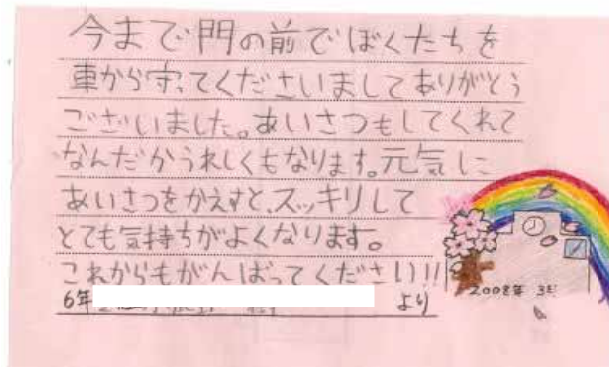 今まで門の前でぼくたちを
車から守ってくださいましてありがとう
ございました。あいさつもしてくれて
なんだかうれしくもなります。元気に
あいさつをかえすと、スッキリして
とても気持ちがよくなります。
これからもがんばってください!!
6年 より
2008年 3月